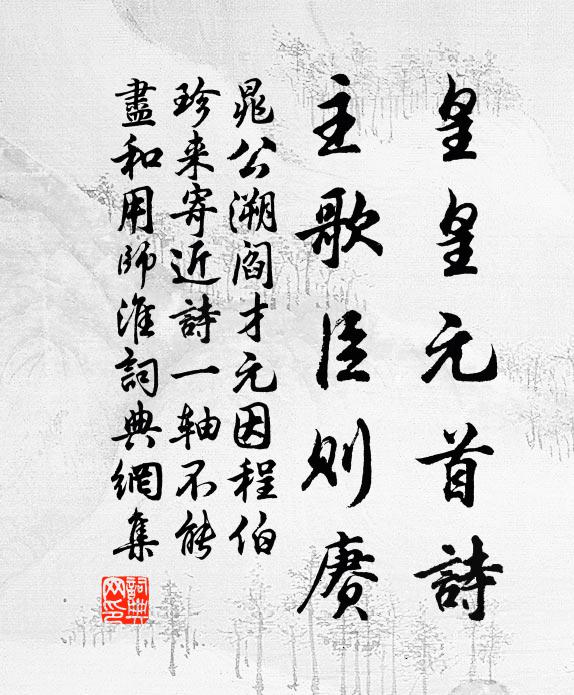 皇皇元首詩
主歌臣則賡
晁公溯閻才元因程伯
珍来寄近詩一轴不能
盡和用師淮詞典網集
詞典
網印